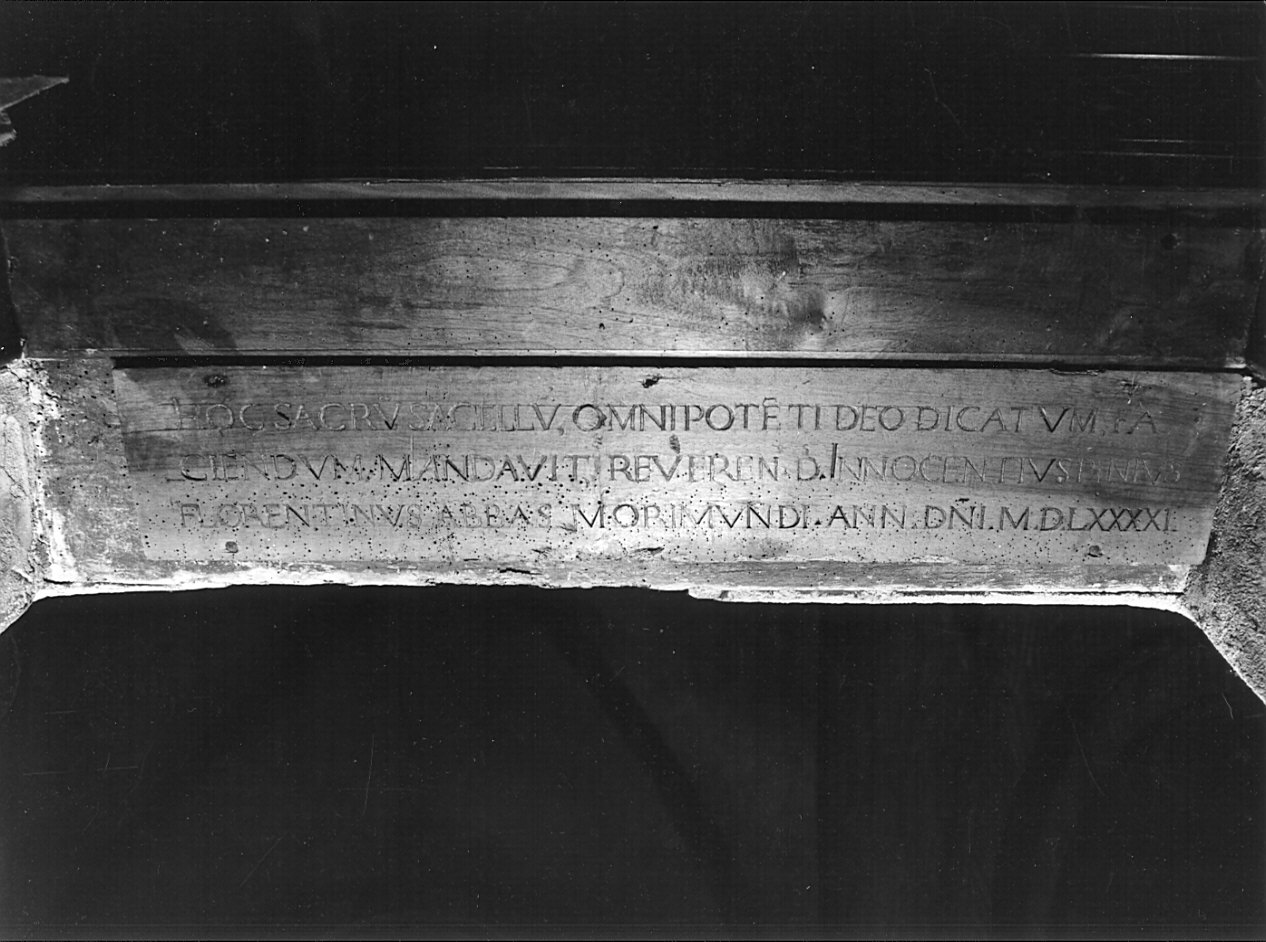 HOC SACRŪ SACELLŪ, OMNIPOTĒTI DEO DICATVM, FA
CIENDVM MANDAVIT REVEREN. D. INNOCENTIVS PINIVS
FLORENTINVS ABBAS MORIMVNDI. ANN. DÑI. M.DLXXXXI.